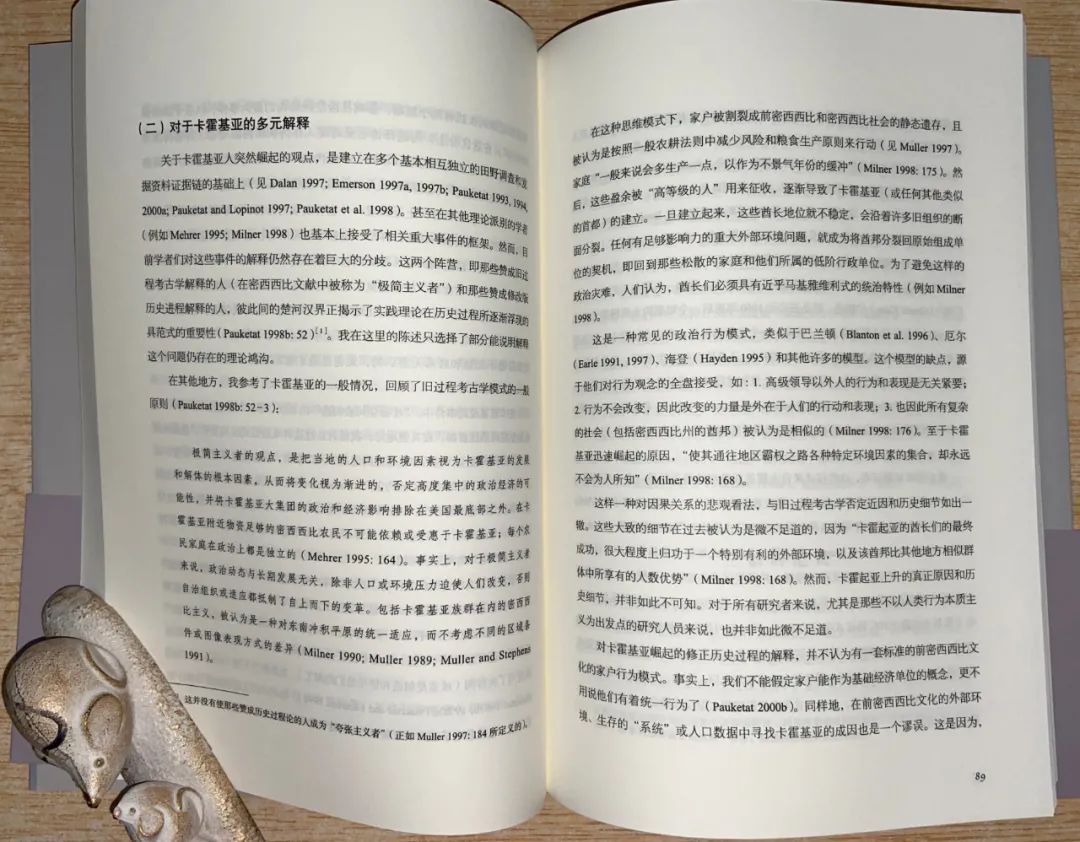 （二）对于卡霍基亚的多元解释
关于卡霍基亚人突然崛起的观点，是建立在多个基本相互独立的田野调查和发
掘资料证据链的基础上（见 Dalan 1997; Emerson 1997a, 1997b; Pauketat 1993, 1994,
2000a; Pauketat and Lopinot 1997; Pauketat et al. 1998）。甚至在其他理论派别的学者
（例如 Mehrer 1995; Milner 1998）也基本上接受了相关重大事件的框架。然而，目
前学者们对这些事件的解释仍然存在着巨大的分歧。这两个阵营，即那些赞成旧过
程考古学解释的人（在密西西比文献中被称为“极简主义者”）和那些赞成修改版
历史进程解释的人，彼此间的楚河汉界正揭示了实践理论在历史过程所逐渐浮现的
具范式的重要性（Pauketat 1998b: 52）[1]。我在这里的陈述只选择了部分能说明解释
这个问题仍存在的理论鸿沟。
在其他地方，我参考了卡霍基亚的一般情况，回顾了旧过程考古学模式的一般
原则（Pauketat 1998b: 52-3）：
极简主义者的观点，是把当地的人口和环境因素视为卡霍基亚的发展
和解体的根本因素，从而将变化视为渐进的，否定高度集中的政治经济的可
能性，并将卡霍基亚大集团的政治和经济影响排除在美国最底部之外。在卡
霍基亚附近物资足够的密西西比农民不可能依赖或受惠于卡霍基亚；每个农
民家庭在政治上都是独立的（Mehrer 1995: 164）。事实上，对于极简主义者
来说，政治动态与长期发展无关，除非人口或环境压力迫使人们改变，否则
自治组织或适应都抵制了自上而下的变革。包括卡霍基亚族群在内的密西西
比主义，被认为是一种对东南冲积平原的统一适应，而不考虑不同的区域条
件或图像表现方式的差异（Milner 1990; Muller 1989; Muller and Stephens
1991）。
这并没有使那些赞成历史过程论的人成为“夸张主义者”（正如 Muller 1997: 184 所定义的）。
在这种思维模式下，家户被割裂成前密西西比和密西西比社会的静态遗存，且
被认为是按照一般农耕法则中减少风险和粮食生产原则来行动（见 Muller 1997）。
家庭“一般来说会多生产一点，以作为不景气年份的缓冲”（Milner 1998: 175）。然
后，这些盈余被“高等级的人”用来征收，逐渐导致了卡霍基亚（或任何其他类似
的首都）的建立。一旦建立起来，这些酋长地位就不稳定，会沿着许多旧组织的断
面分裂。任何有足够影响力的重大外部环境问题，就成为将酋邦分裂回原始组成单
位的契机，即回到那些松散的家庭和他们所属的低阶行政单位。为了避免这样的
政治灾难，人们认为，酋长们必须具有近乎马基雅维利式的统治特性（例如 Milner
1998）。
这是一种常见的政治行为模式，类似于巴兰顿（Blanton et al. 1996）、厄尔
（Earle 1991, 1997）、海登（Hayden 1995）和其他许多的模型。这个模型的缺点，源
于他们对行为观念的全盘接受，如：1. 高级领导以外人的行为和表现是无关紧要；
2. 行为不会改变，因此改变的力量是外在于人们的行动和表现；3. 也因此所有复杂
的社会（包括密西西比州的酋邦）被认为是相似的（Milner 1998: 176）。至于卡霍
基亚迅速崛起的原因，“使其通往地区霸权之路各种特定环境因素的集合，却永远
不会为人所知”（Milner 1998: 168）。
这样一种对因果关系的悲观看法，与旧过程考古学否定近因和历史细节如出一
辙。这些大致的细节在过去被认为是微不足道的，因为“卡霍起亚的酋长们的最终
成功，很大程度上归功于一个特别有利的外部环境，以及该酋邦比其他地方相似群
体中所享有的人数优势”（Milner 1998: 168）。然而，卡霍起亚上升的真正原因和历
史细节，并非如此不可知。对于所有研究者来说，尤其是那些不以人类行为本质主
义为出发点的研究人员来说，也并非如此微不足道。
对卡霍基亚崛起的修正历史过程的解释，并不认为有一套标准的前密西西比文
化的家户行为模式。事实上，我们不能假定家户能作为基础经济单位的概念，更不
用说他们有着统一行为了（Pauketat 2000b）。同样地，在前密西西比文化的外部环
境、生存的“系统”或人口数据中寻找卡霍基亚的成因也是一个谬误。这是因为，
89